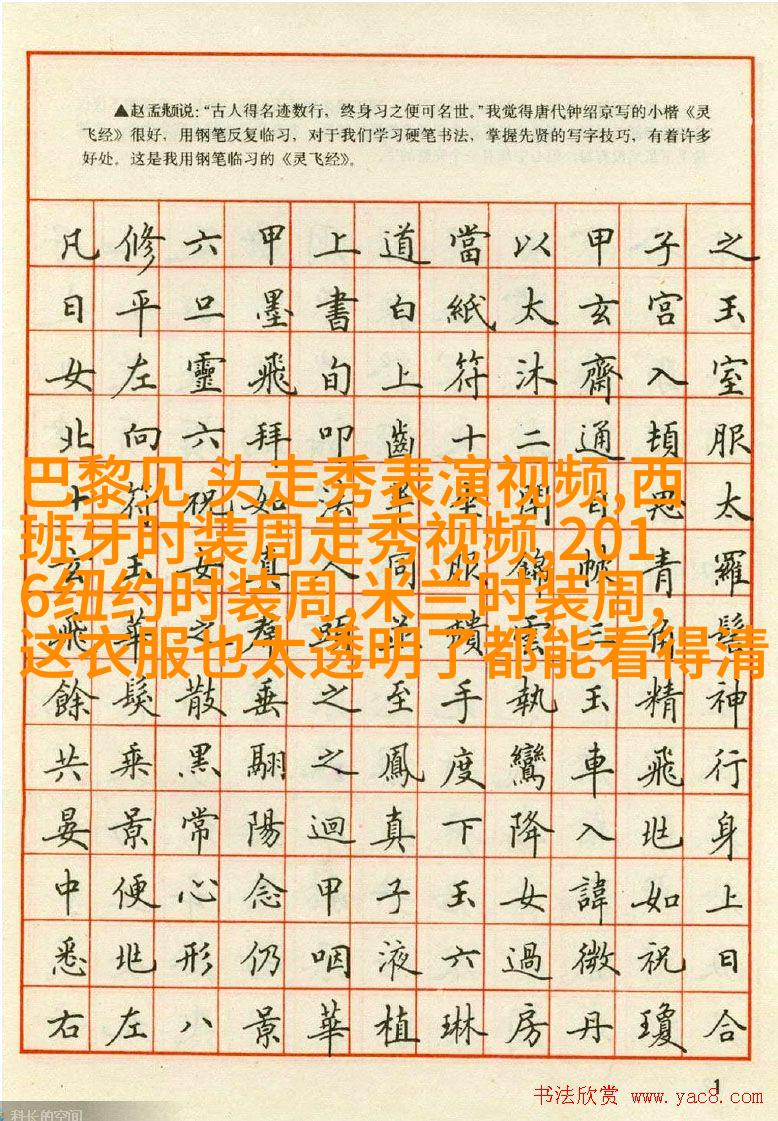 ▲赵孟頫说：“古人得名迹数行，终身习之便可名世。”我觉得唐代钟绍京写的小楷《灵
飞经》很好，用钢笔反复临习，对于我们学习硬笔书法，掌握先贤的写字技巧，有着许多
好处。这是我用钢笔临习的《灵飞经》。
凡修六甲上道當以甲子之
日平旦墨書白紙太玄宮玉
女左靈飛旬上符沐齋入室
北向六拜叩齒十二通頓服
巴黎见 头走秀表演视频,西
班牙时装周走秀视频,201
6纽约时装周,米兰时装周,
这衣服也太透明了都能看得清
十符祝如法畢坐閉目思太
玄玉女真人同服錦帔青羅
飛華之裙頭並頹雲三角髻
餘髮散垂之至手執玉精神
共乘黑翮之鳳度鸞車飛行
晏景常陽迴真下降入兆身
中便心念甲子玉女諱如上
悉兆形仍咽液六過微祝日
右左八景華植琳房丹瓊合
1
书法欣赏 www.yac8.com
科长的空间